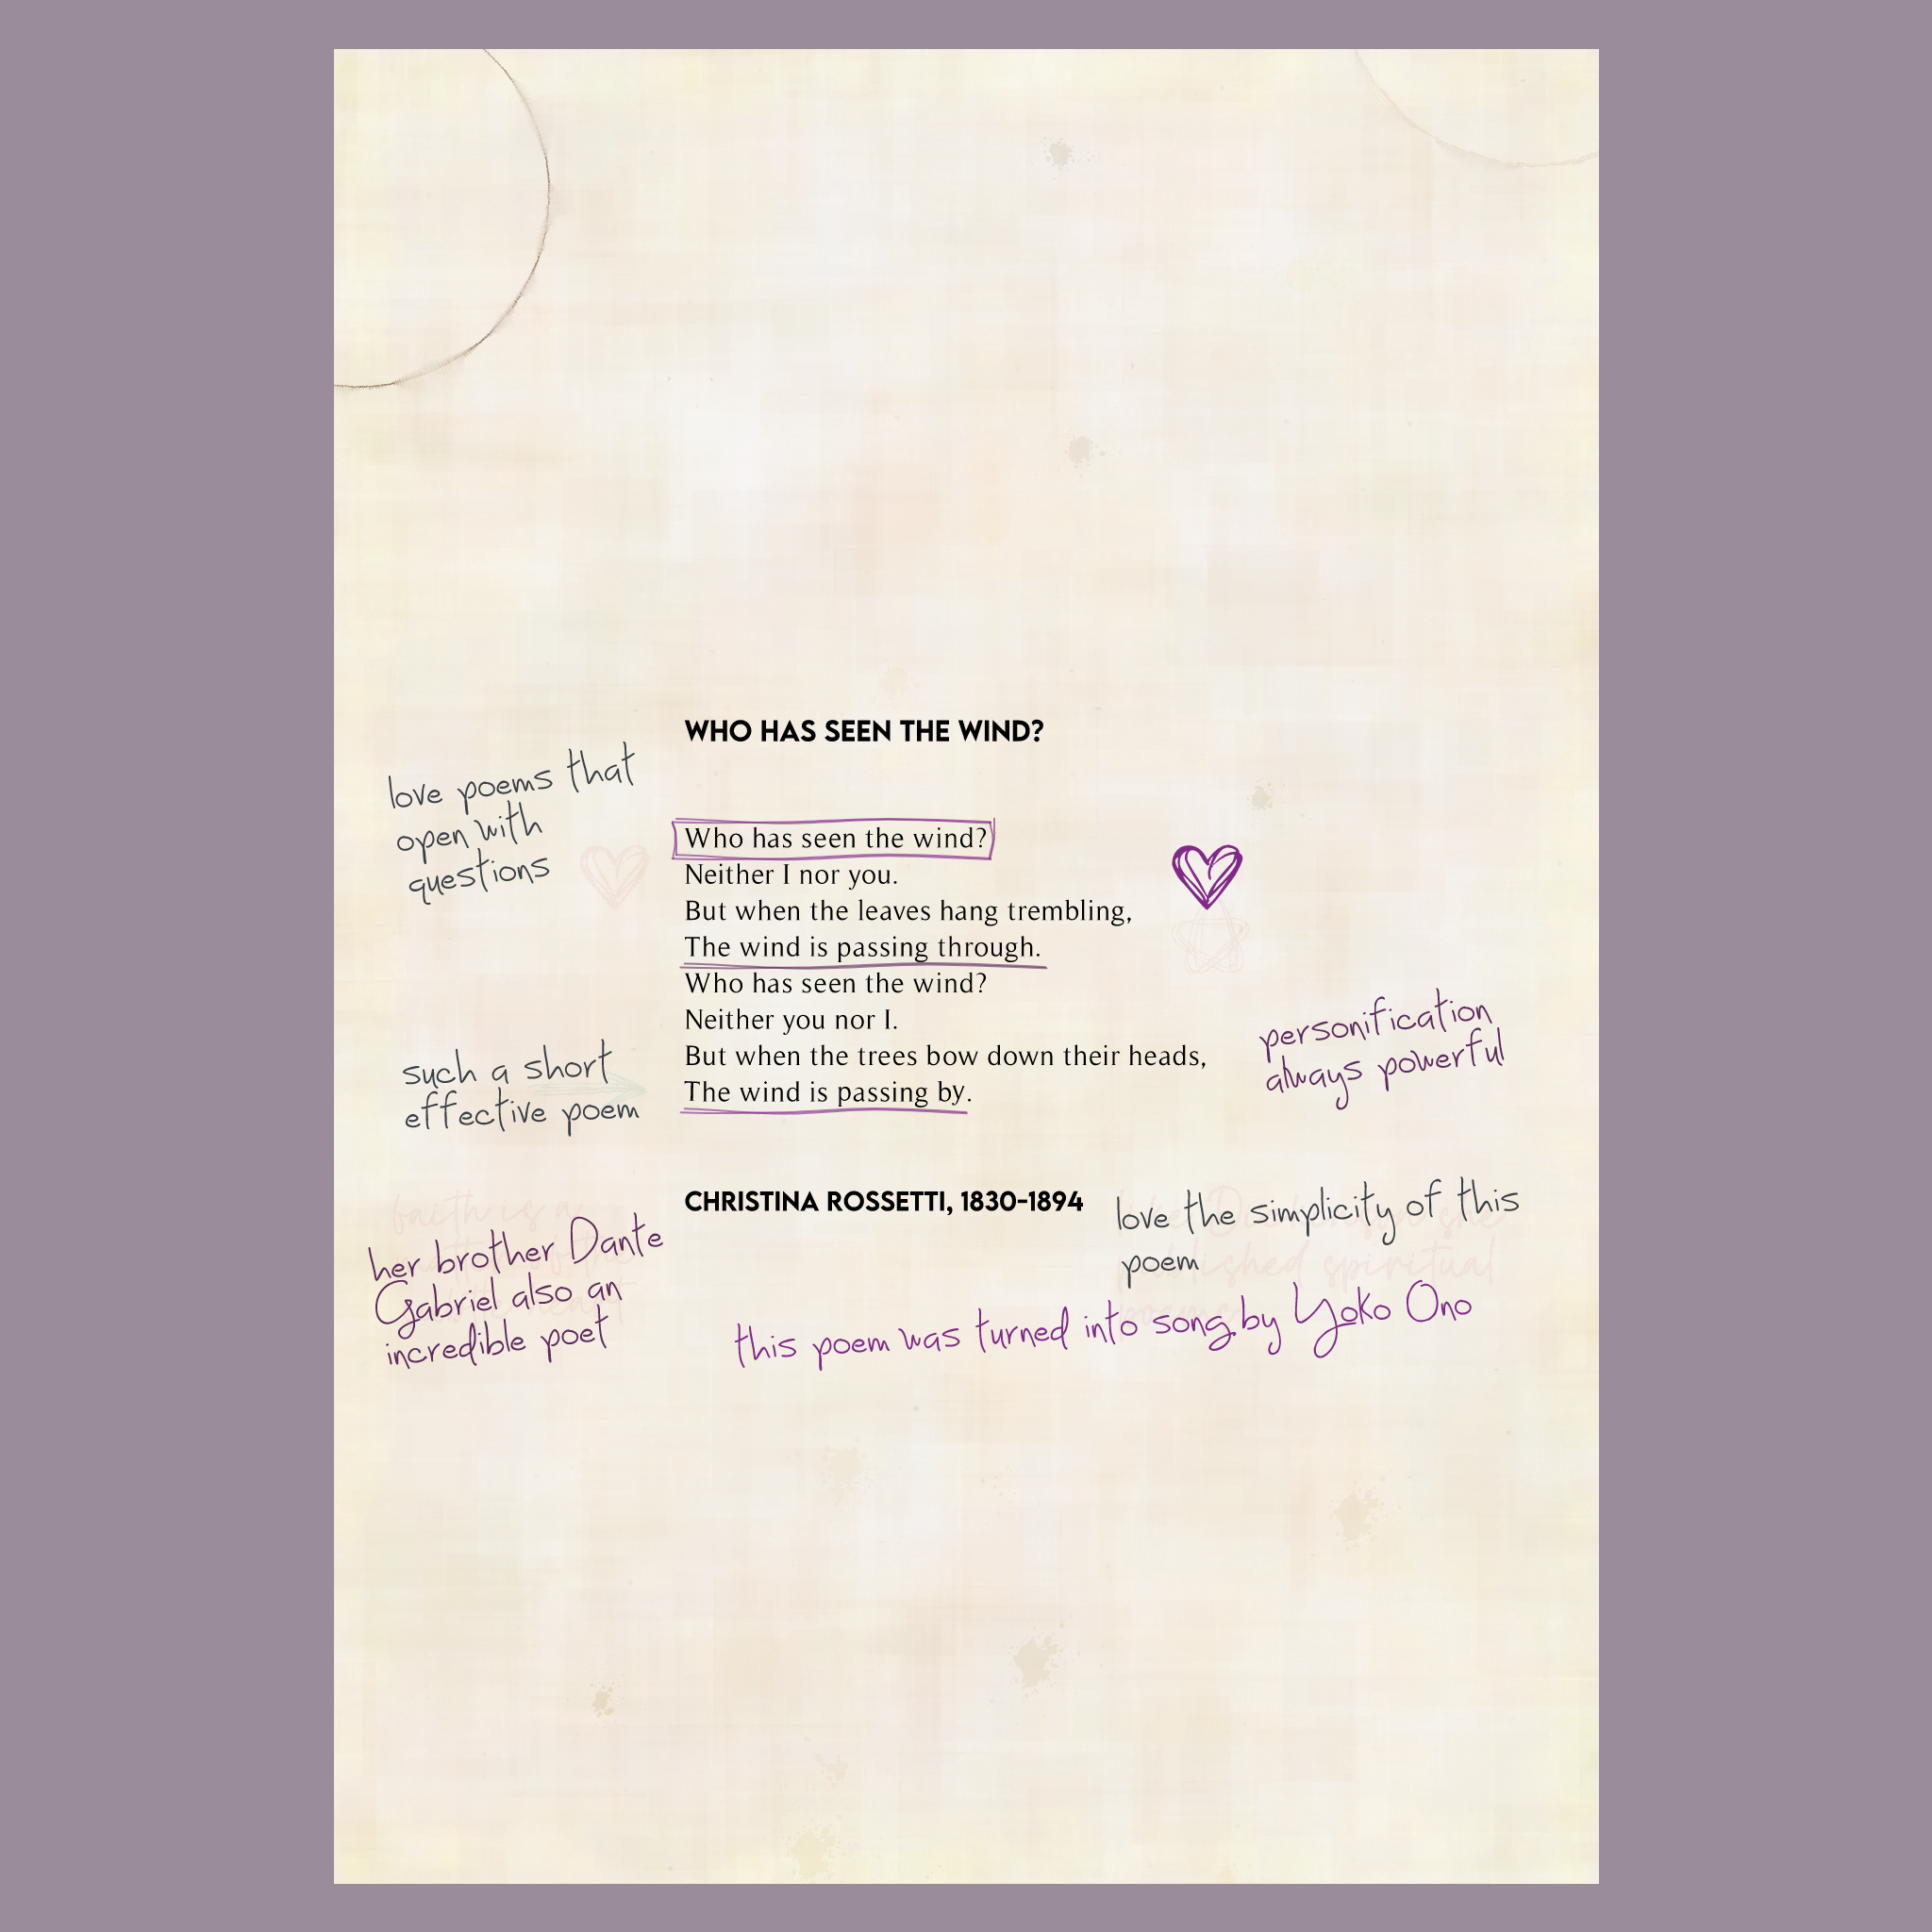 WHO HAS SEEN THE WIND?
love poems that
open with
questions
Who has seen the wind?
Neither I nor you.
But when the leaves hang trembling,
The wind is passing through.
Who has seen the wind?
Neither you nor I.
But when the trees bow down their heads,
The wind is passing by.
personification
always powerful
such a short
effective poem
CHRISTINA ROSSETTI, 1830-1894
love the simplicity of this
poem
her brother Dante
Gabriel also an
incredible poet
this poem was turned into song by Yoko Ono
faith is a
published spiritual